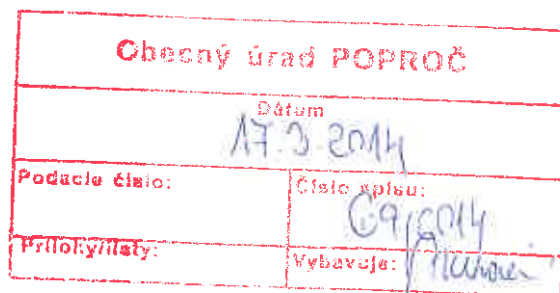 Obecný úrad POPROČ
Dátum
17.3.2014
Podacie číslo:
Číslo spisu:
Prílohy/listy:
Vybavuje: